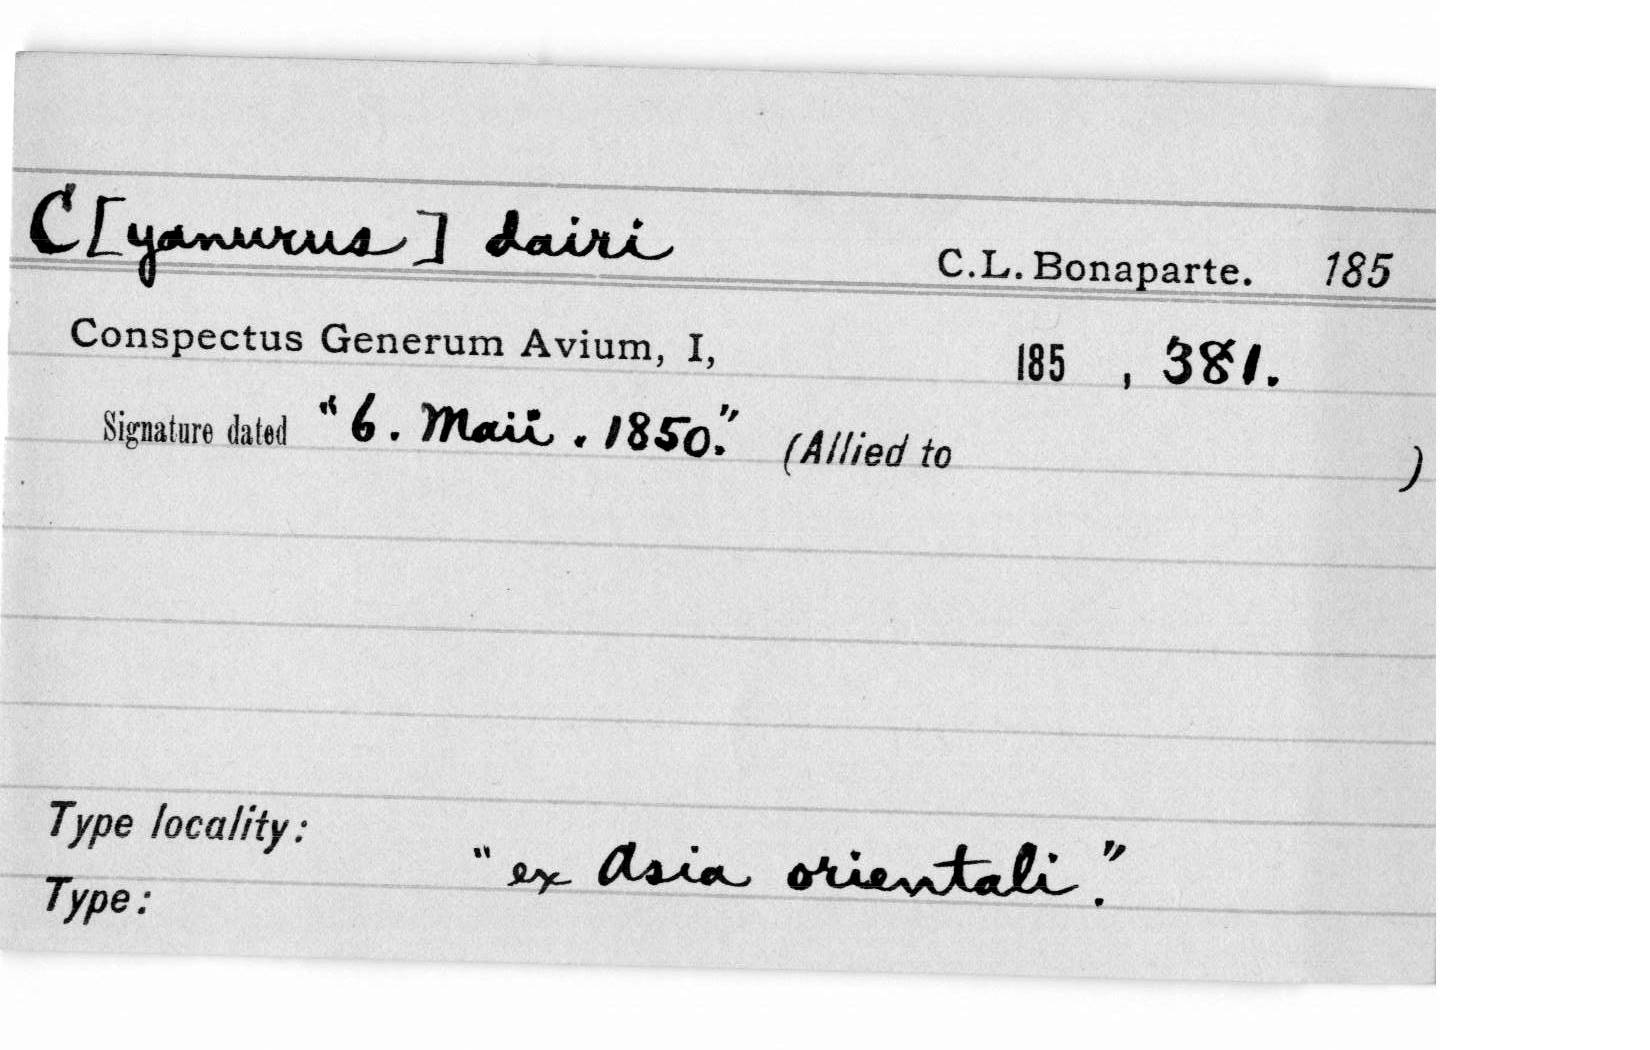 C[yanurus] dairi C.L. Bonaparte. 185
Conspectus Generum Avium, I, 185 , 381.
Signature dated "6. Maii. 1850." (Allied to )
Type locality:
"ex Asia orientali."
Type: